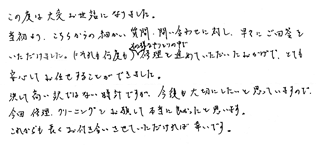 この度は大変お世話になりました。
当初より、こちらからの細かい質問、問い合わせに対し、早々にご回答を
いただけました。それも何度も
やりとりの中で
修理を進めていただいたおかげで、とても
安心してお任せすることができました。
決して高い訳ではない時計ですが、今後も大切にしたいと思っていますので、
今回修理、クリーニングとお願いして本当に良かったと思います。
これからも長くお付き合いさせていただければ幸いです。